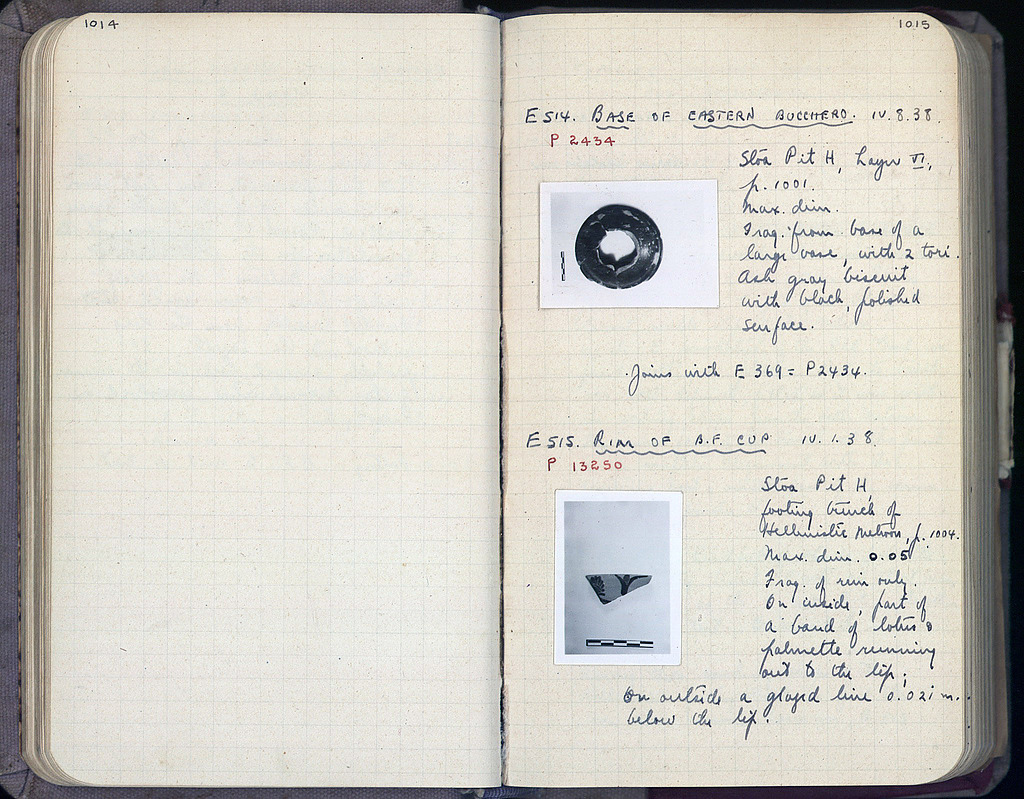 1014
1015
E 514. BASE OF EASTERN BUCCHERO. IV.8.38.
P 2434
Stoa Pit H, Layer VI,
p. 1001.
Max. dim.
Frag. from base of a
large vase, with 2 tori.
Ash gray biscuit
with black, polished
surface.
Joins with E 369 = P2434.
E 515. RIM OF B.F. CUP IV.1.38
P 13250
Stoa Pit H,
footing trench of
Hellenistic Metroon, p. 1004.
Max. dim. 0.05
Frag. of rim only.
On inside, part of
a band of lotus &
palmette running
out to the lip;
On outside a glazed line 0.021 m.
below the lip.